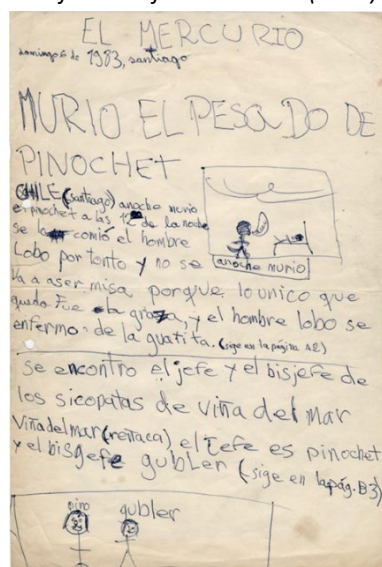 EL MERCURIO
domingo 6 de 1983, santiago
MURIO EL PESADO DE
PINOCHET
CHILE (santiago) anoche murio
pinochet a las 12 de la noche
se lo comió el hombre
Lobo por tonto y no se
anoche murio
va a aser misa porque lo unico que
quedo Fue la grasa, y el hombre lobo se
enfermo de la guatita. (sige en la página A2)
se encontro el jefe y el bisjefe de
los sicopatas de viña del mar
Viña del mar (reñaca) el Jefe es pinochet
y el bisgefe gubler (sige en la pág. B3)
pino gubler